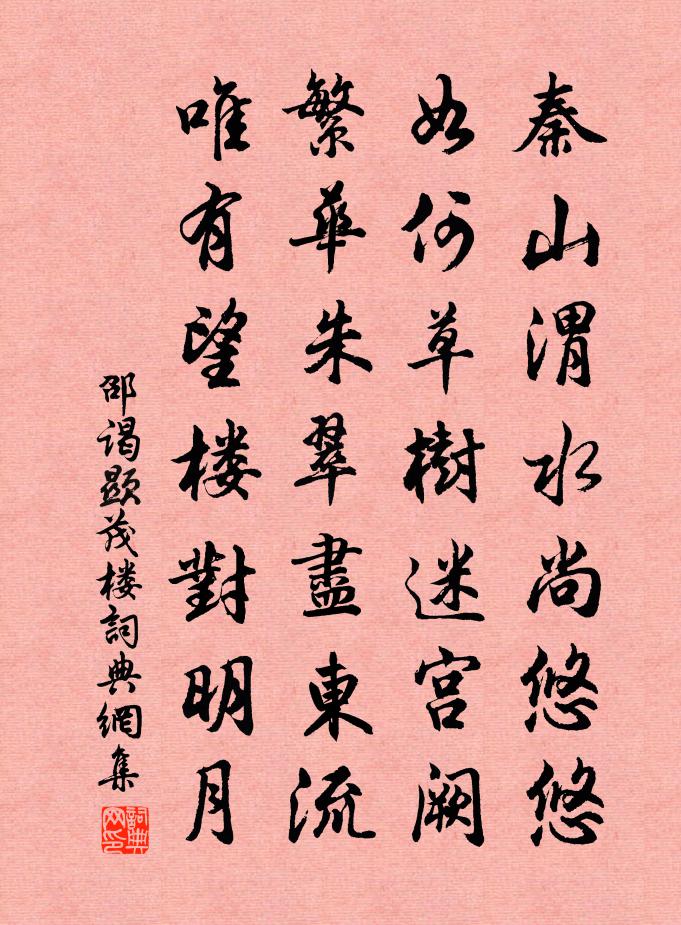 秦山渭水尚悠悠
如何草樹迷宮闕
繁華朱翠盡東流
唯有望楼對明月
邵谒顯茂楼詞典網集
詞典网印